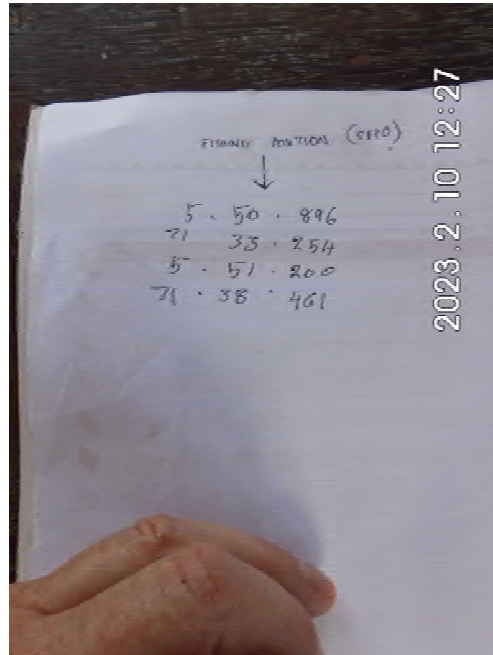 FISHING POSITION
↓
5 . 50 . 896
71 33 . 254
5 . 51 . 200
71 . 38 . 461
2023.2.10 12:27